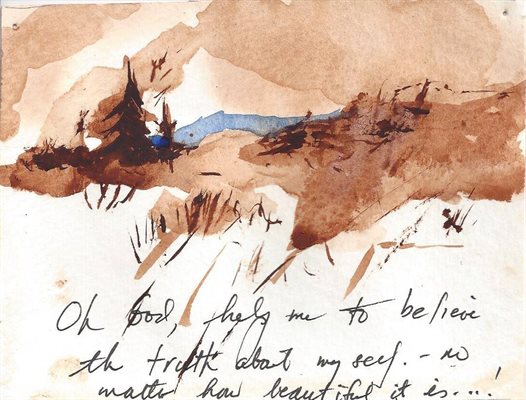 Oh God, help me to believe
the truth about my self. - no
matter how beautiful it is...!